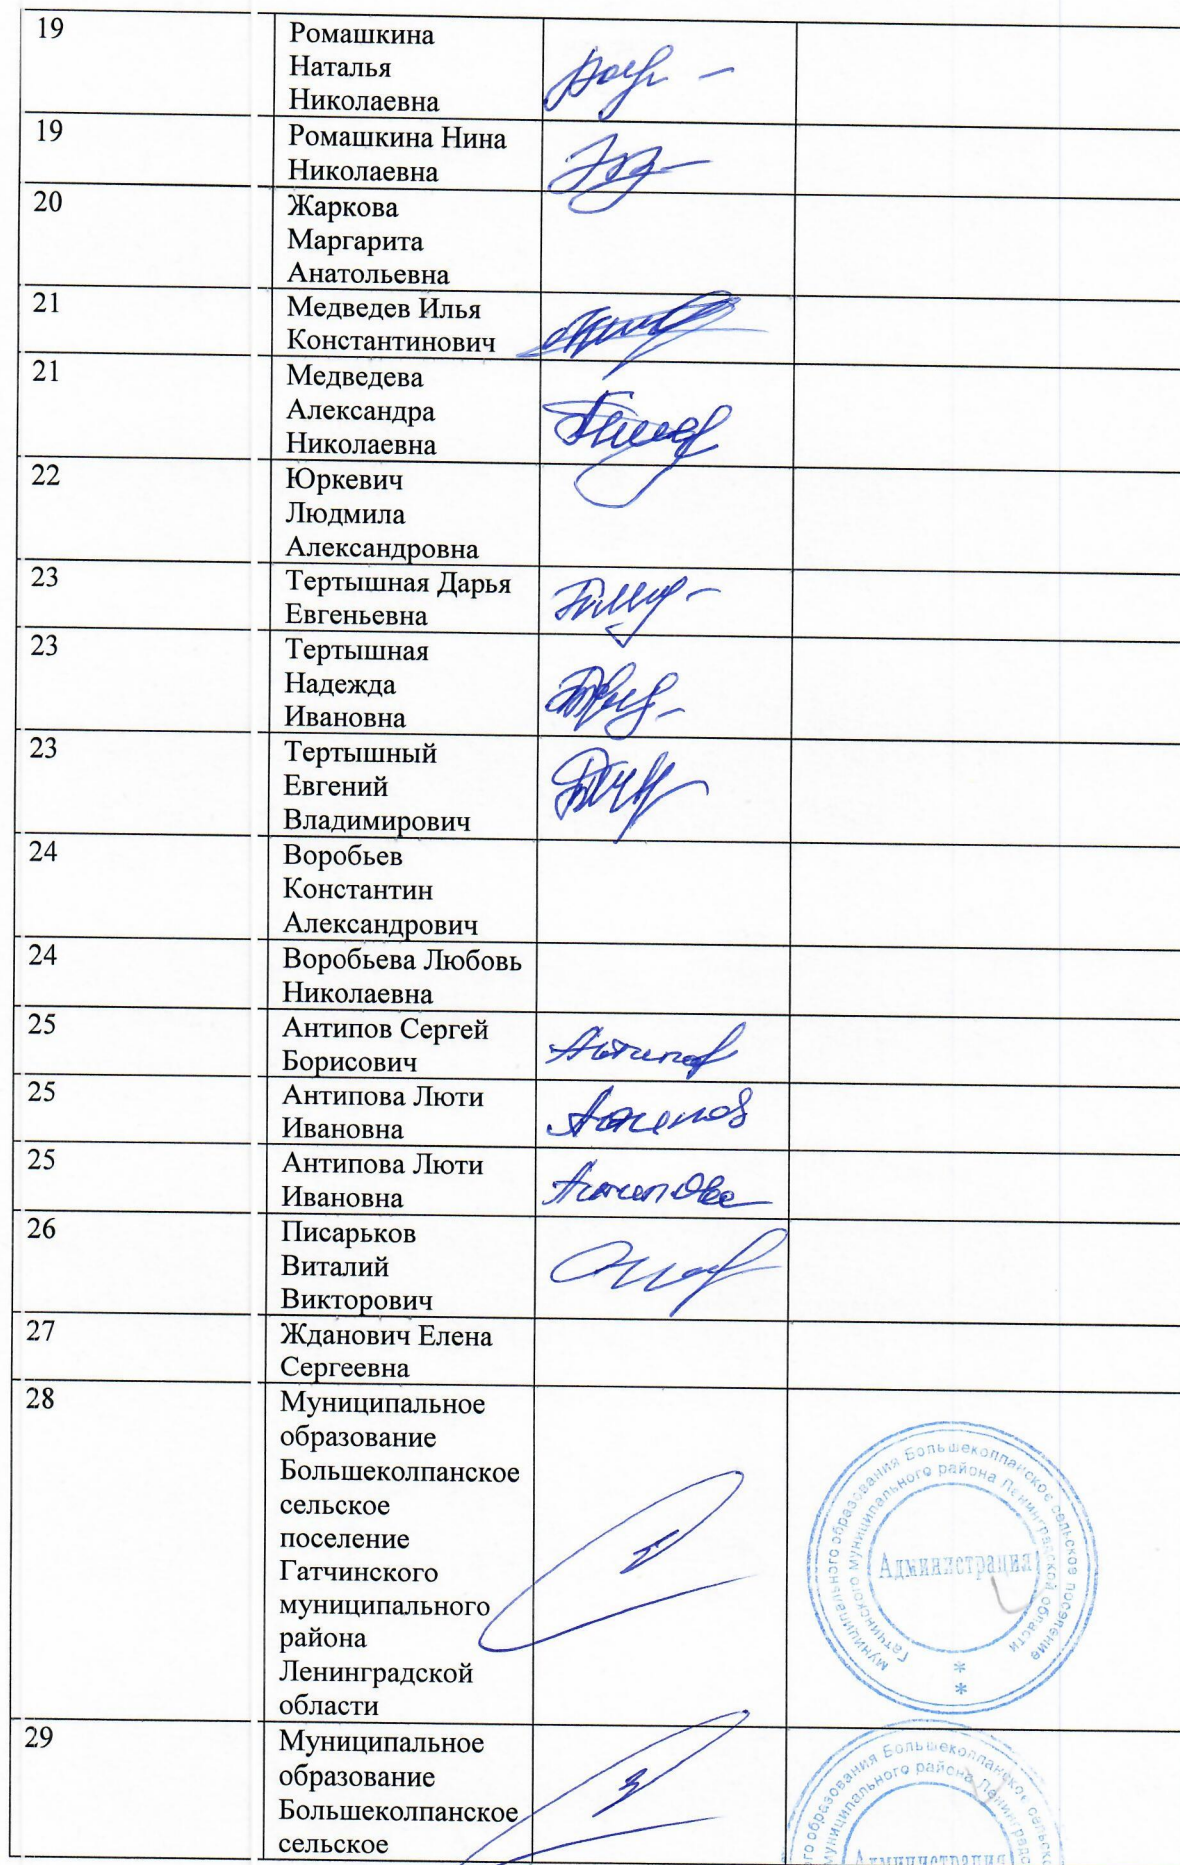 19
Ромашкина
Наталья
Николаевна
19
Ромашкина Нина
Николаевна
20
Жаркова
Маргарита
Анатольевна
21
Медведев Илья
Константинович
21
Медведева
Александра
Николаевна
22
Юркевич
Людмила
Александровна
23
Тертышная Дарья
Евгеньевна
23
Тертышная
Надежда
Ивановна
23
Тертышный
Евгений
Владимирович
24
Воробьев
Константин
Александрович
24
Воробьева Любовь
Николаевна
25
Антипов Сергей
Борисович
25
Антипова Люти
Ивановна
25
Антипова Люти
Ивановна
Антипова
26
Писарьков
Виталий
Викторович
27
Жданович Елена
Сергеевна
28
Муниципальное
образование
Большеколпанское
сельское
поселение
Гатчинского
муниципального
района
Ленинградской
области
муниципального образования Большеколпанское сельское поселение
Гатчинского муниципального района Ленинградской области
Администрация
* *
29
Муниципальное
образование
Большеколпанское
сельское
образования Большеколпанское
муниципального района
Администрация